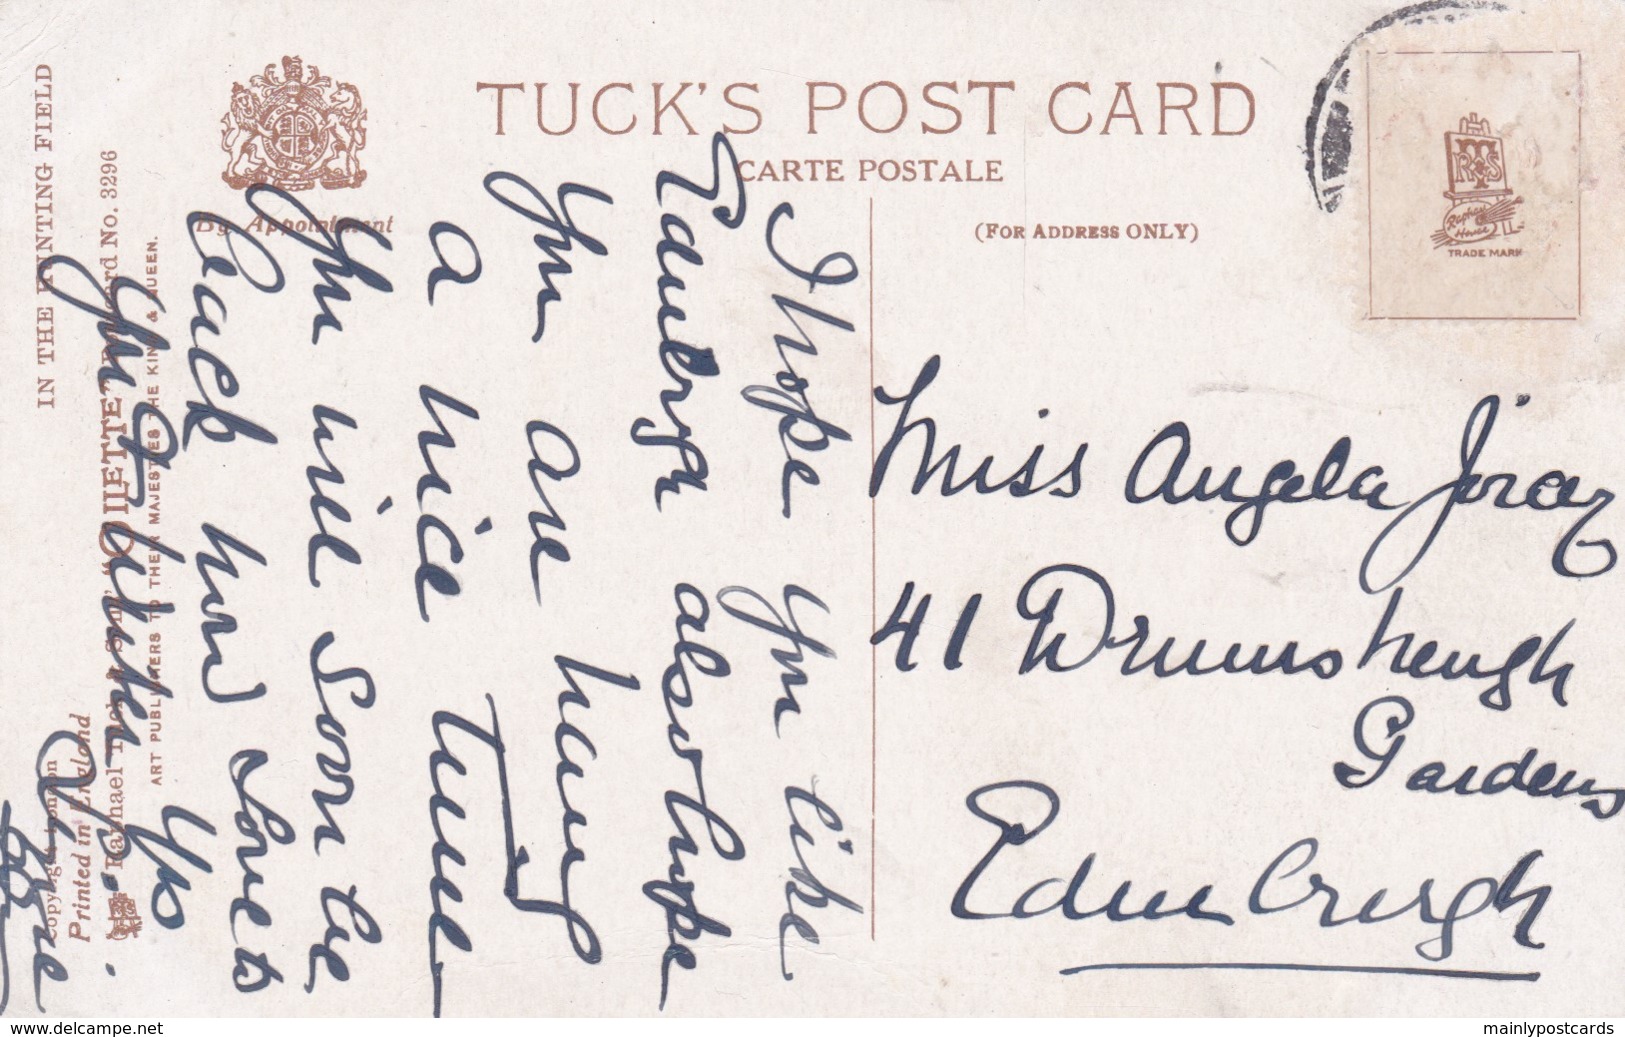 IN THE HUNTING FIELD
By Appointment
TUCK'S POST CARD
CARTE POSTALE
(FOR ADDRESS ONLY)
Raphael House
TRADE MARK
Copyright London
Printed in England
Raphael Tuck & Sons' "OILETTE" Postcard No. 3296
ART PUBLISHERS TO THEIR MAJESTIES THE KING & QUEEN.
I hope you like
also hope
you are having
a nice time
you will soon be
back now
yrs
Miss Angela
41 Drumsheugh
Gardens
Edinburgh
www.delcampe.net
mainlypostcards